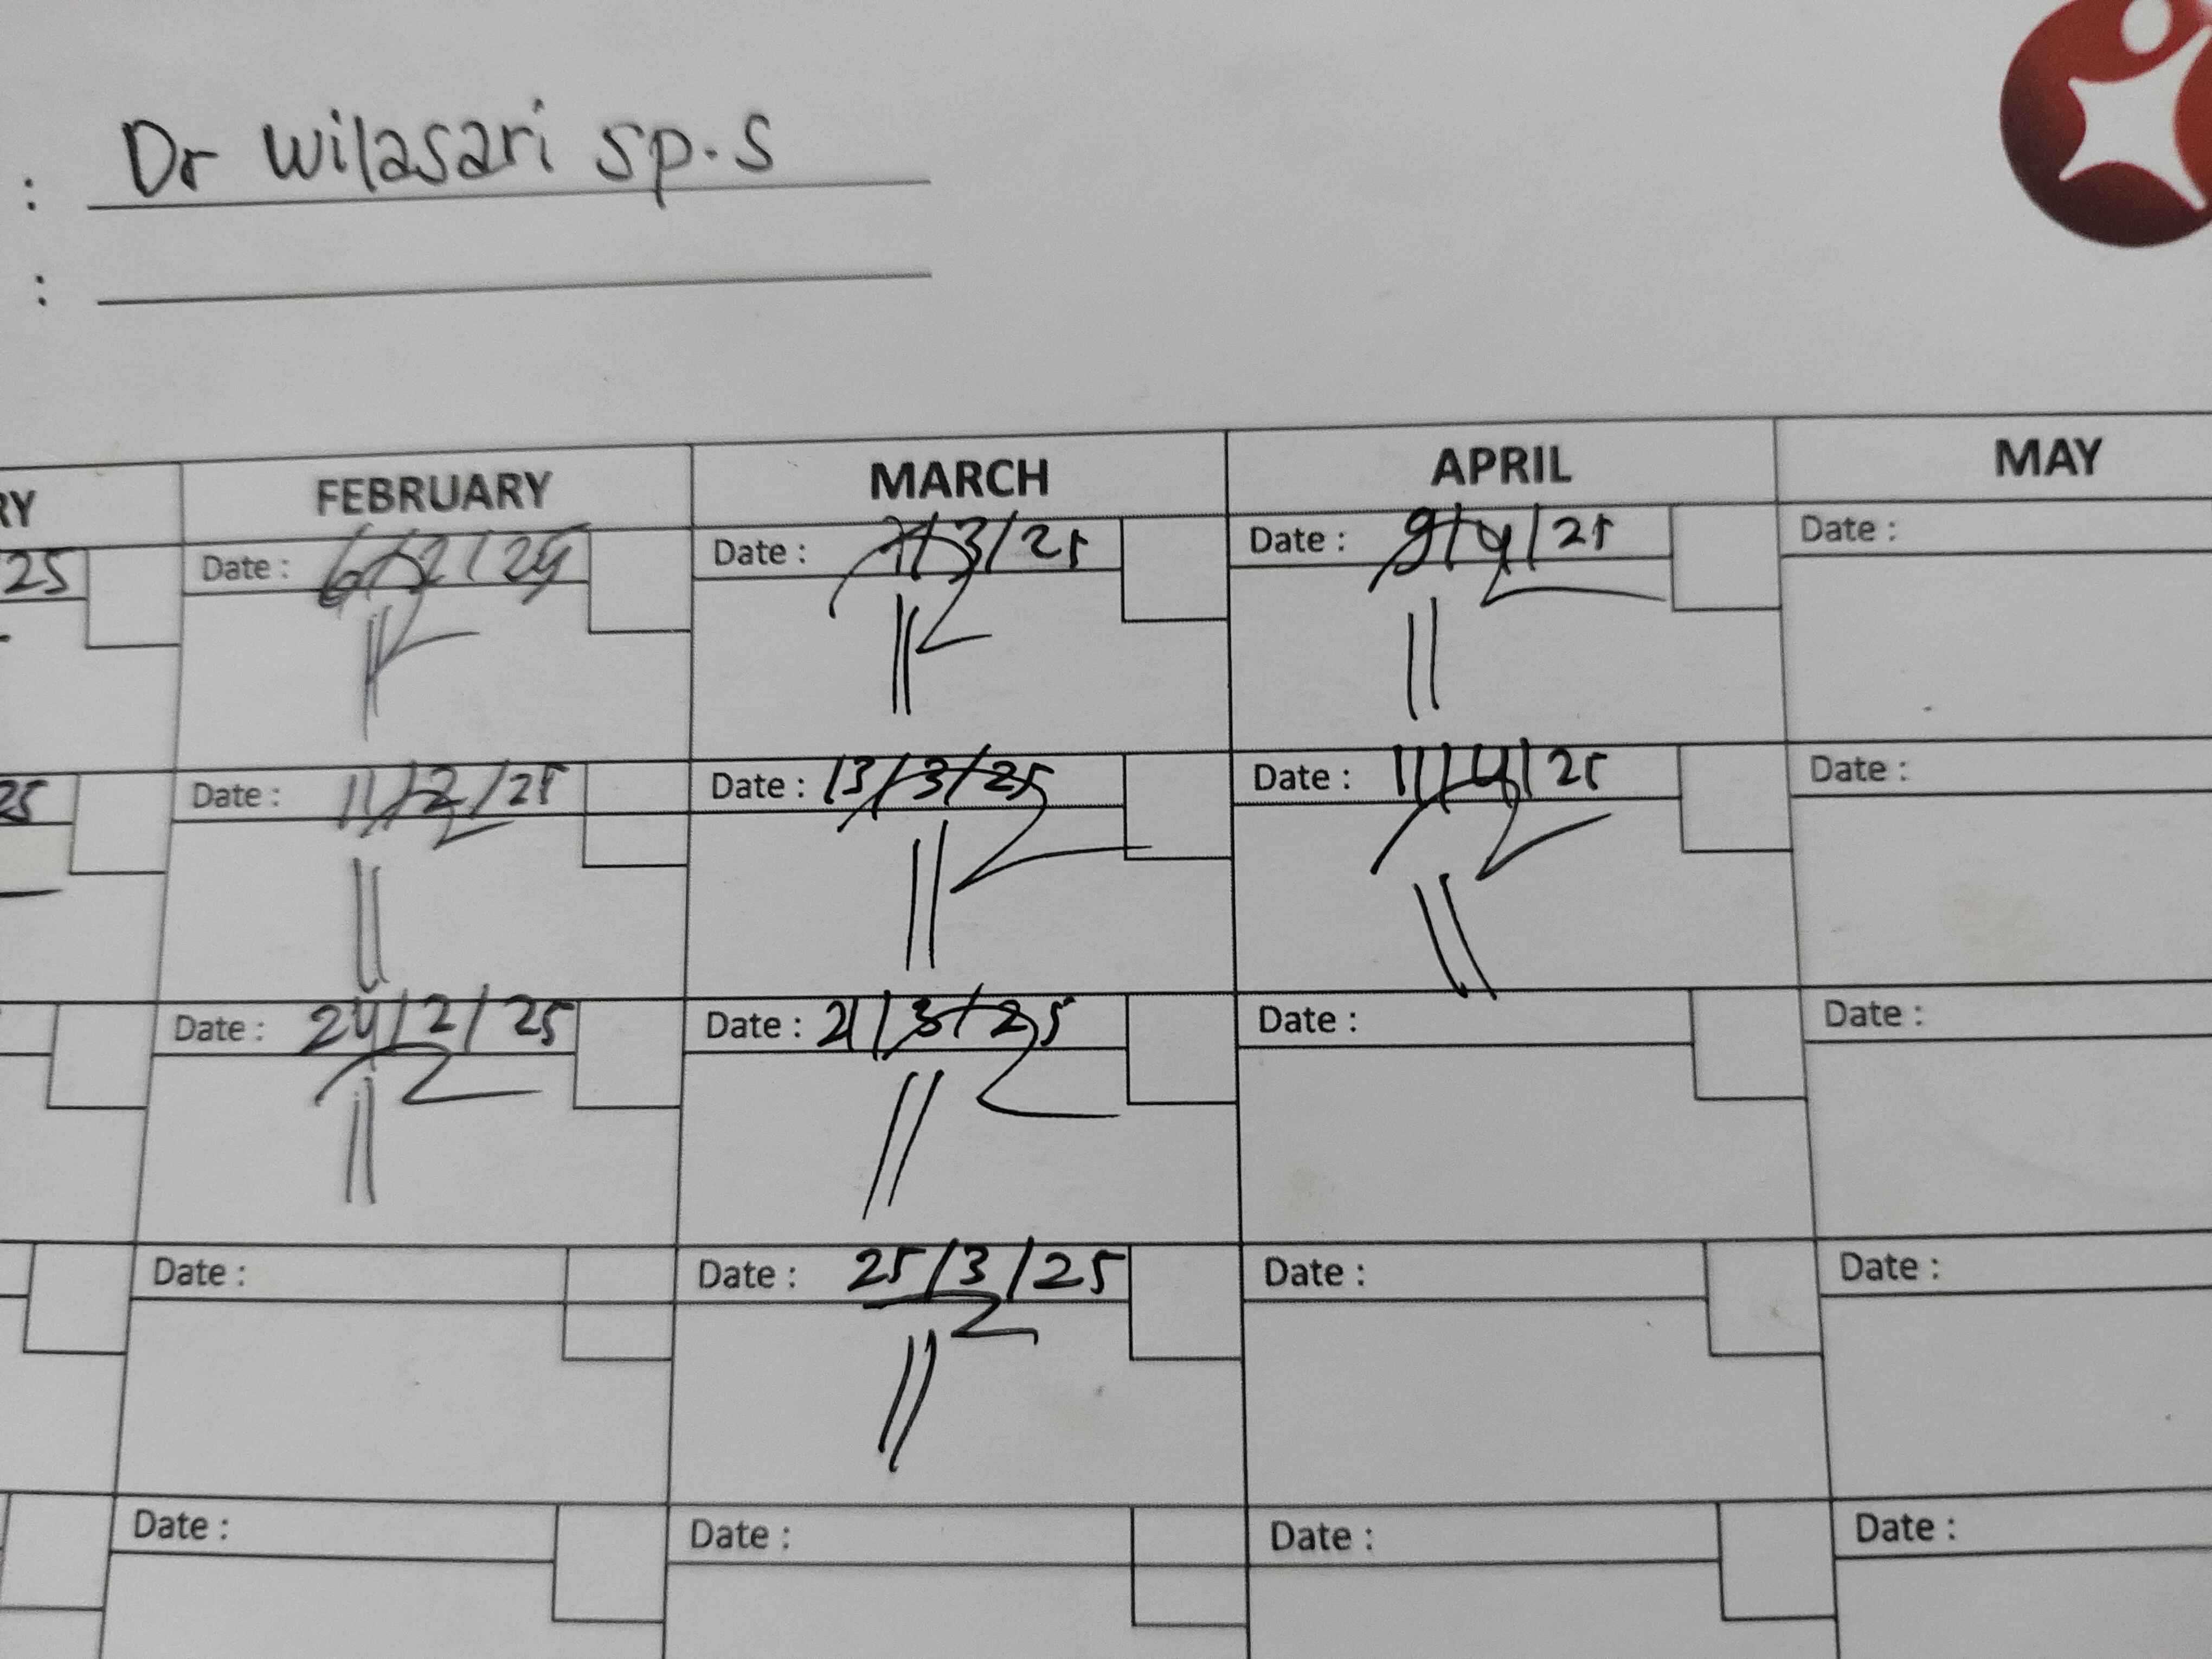 : Dr wilasari sp.s
:
RY FEBRUARY MARCH APRIL MAY
25 Date : 6/2/25 Date : 7/3/25 Date : 9/4/25 Date :
25 Date : 11/2/25 Date : 13/3/25 Date : 11/4/25 Date :
Date : 24/2/25 Date : 21/3/25 Date : Date :
Date : Date : 25/3/25 Date : Date :
Date : Date : Date : Date :